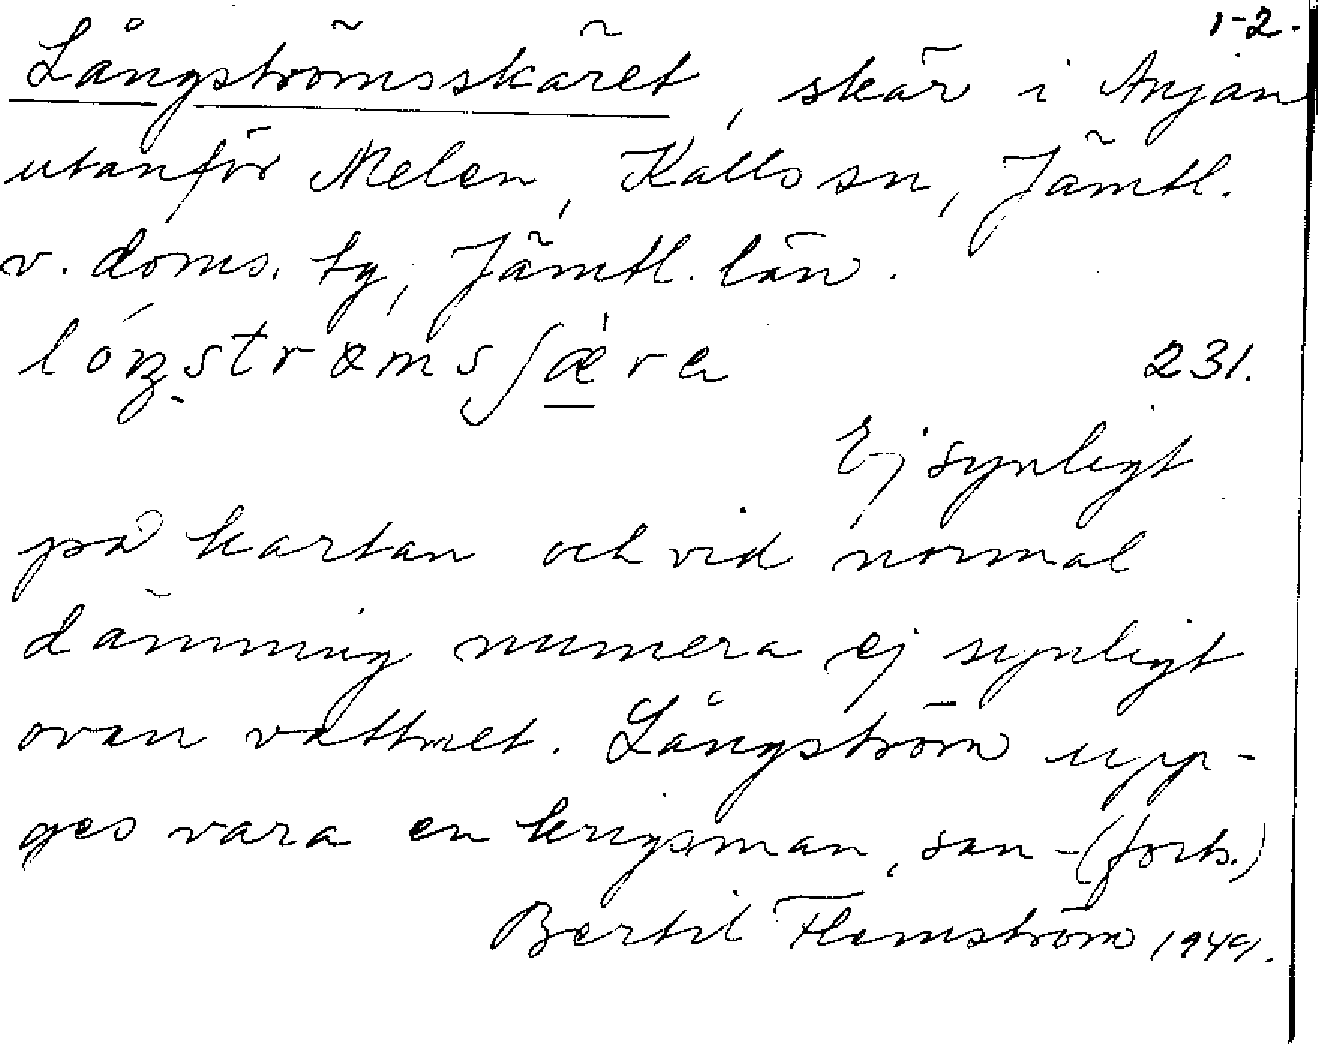 1-2.
Långströmsskäret, skär i Anjan
utanför Melen, Kalls sn, Jämtl.
v. doms. tg, Jämtl. län.
231.
Ej synligt
på kartan och vid normal
dämning numera ej synligt
ovan vattnet. Långström upp-
ges vara en krigsman, san- (forts.)
Bertil Flemström 1949.